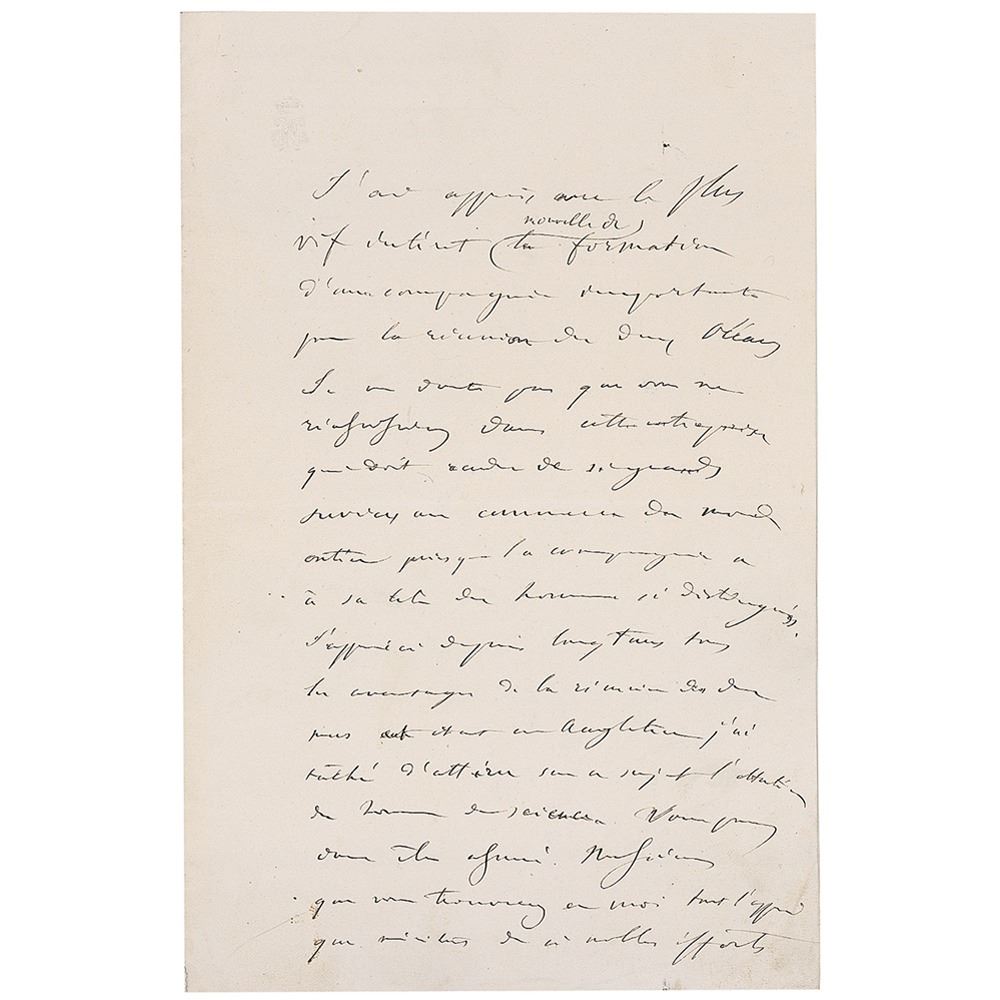 J'ai appris avec le plus
nouvelle de
vif intérêt (la formation
d'une compagnie importante
pour la réunion des deux Océans
Je ne doute pas que vous ne
réussissiez dans cette entreprise
qui doit rendre de si grands
services au commerce du monde
entier puisque la compagnie a
à sa tête des hommes si distingués.
J'apprécie depuis longtems tous
les avantages de la réunion des deux
mers et étant en Angleterre j'ai
tâché d'attirer sur ce sujet l'attention
des hommes de science. Vous pouvez
donc être assuré Messieurs
que vous trouverez en moi tout l'appui
que méritent de si nobles efforts